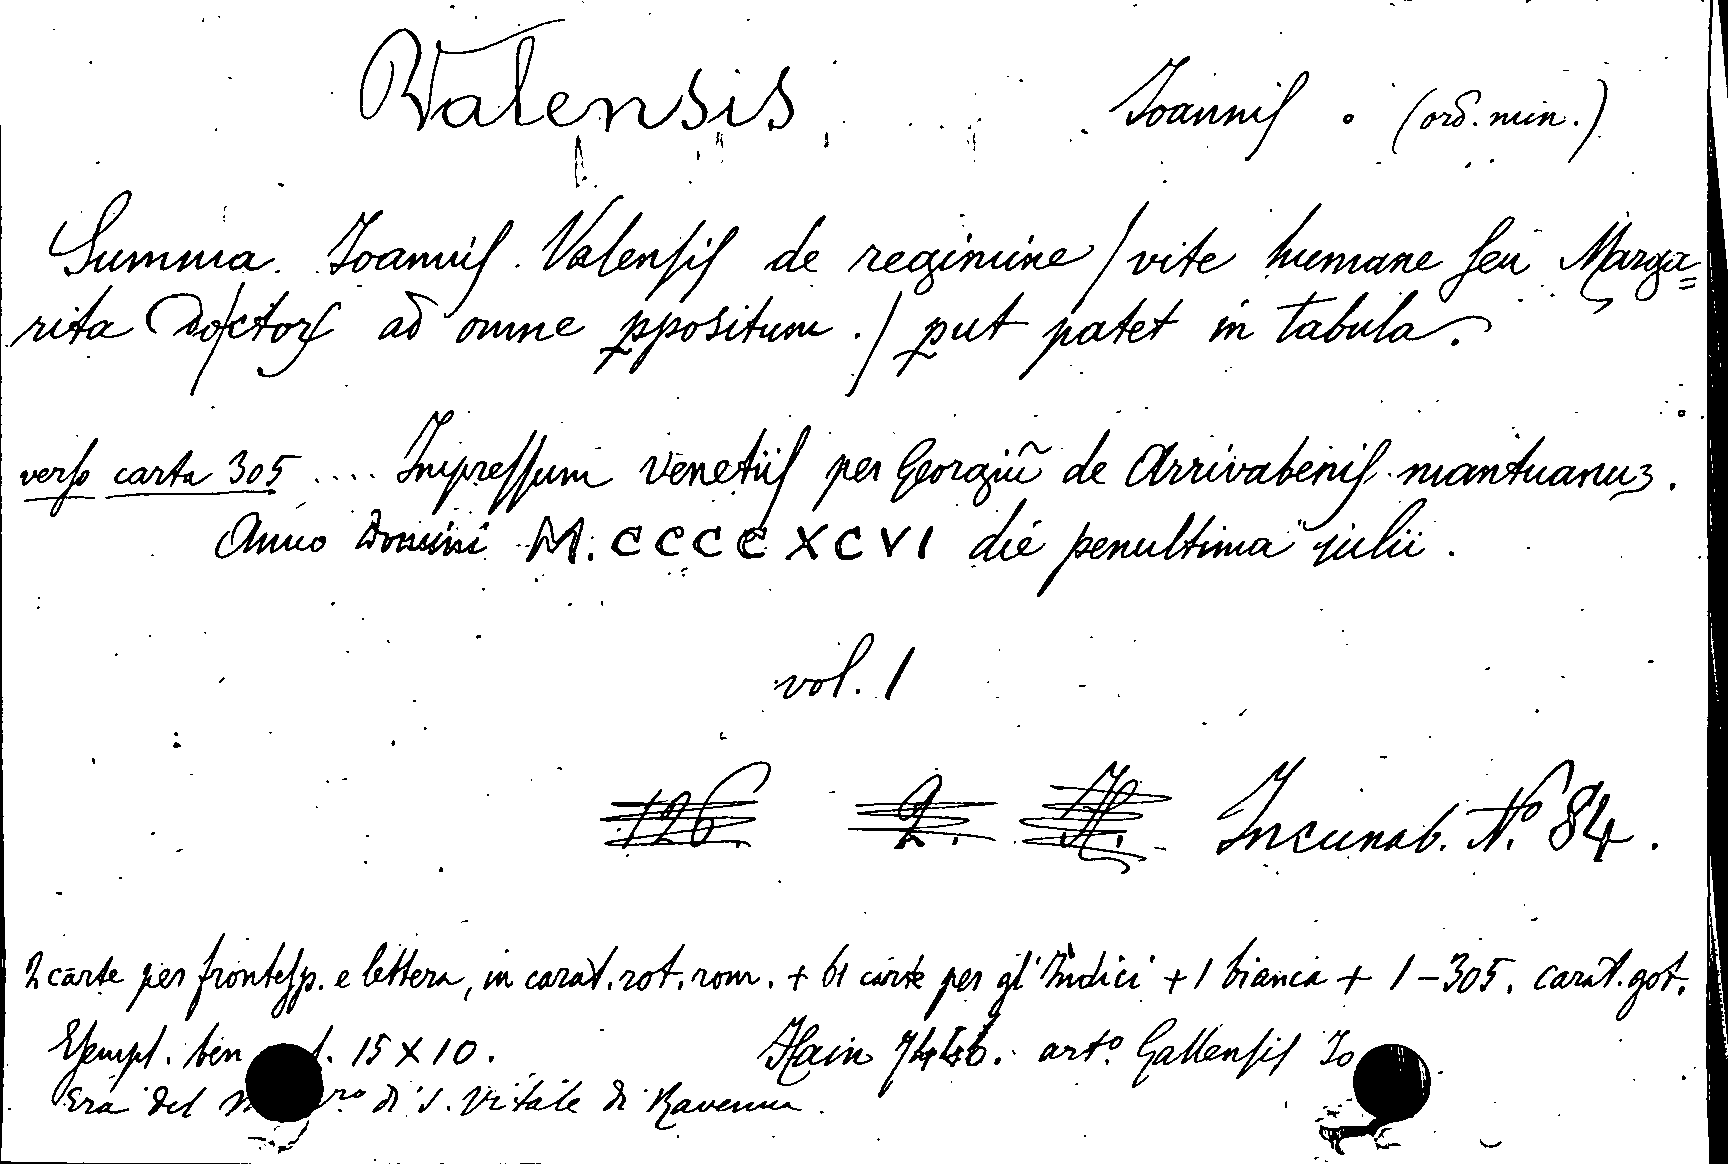 Valensis Joannis . (ord. min.)
Summa Joannis Valensis de regimine / vite humane seu Marga=
rita doctor ad omne ppositum ./ put patet in tabula.
verso carta 305 .... Impressum venetiis per Georgiũ de Arrivabenis mantuanuz.
Anno Domini M.CCCCXCVI die penultima julii.
vol. 1
126 2. H. Incunab. N.º 84.
2 carte per frontesp. e lettera, in carat. rot. rom. + 61 carte per gl' Indici + 1 bianca + 1-305. carat. got.
Esempl. ben 15 X 10. Hain 7446. artº. Gallensis Jo
Era del di S. Vitale di Ravenna.